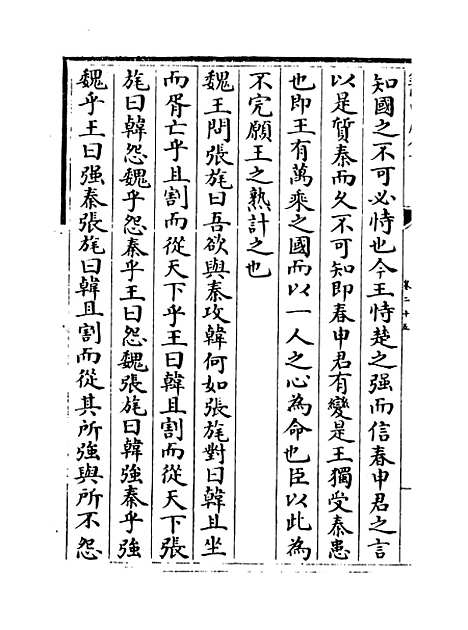 卷二十五
知國之不可必恃也今王恃楚之强而信春申君之言
以是質秦而久不可知即春申君有變是王獨受秦患
也即王有萬乘之國而以一人之心為命也臣以此為
不完願王之熟計之也
魏王問張旄曰吾欲與秦攻韓何如張旄對曰韓且坐
而胥亡乎且割而從天下乎王曰韓且割而從天下張
旄曰韓怨魏乎怨秦乎王曰怨魏張旄曰韓強秦乎強
魏乎王曰强秦張旄曰韓且割而從其所強與所不怨